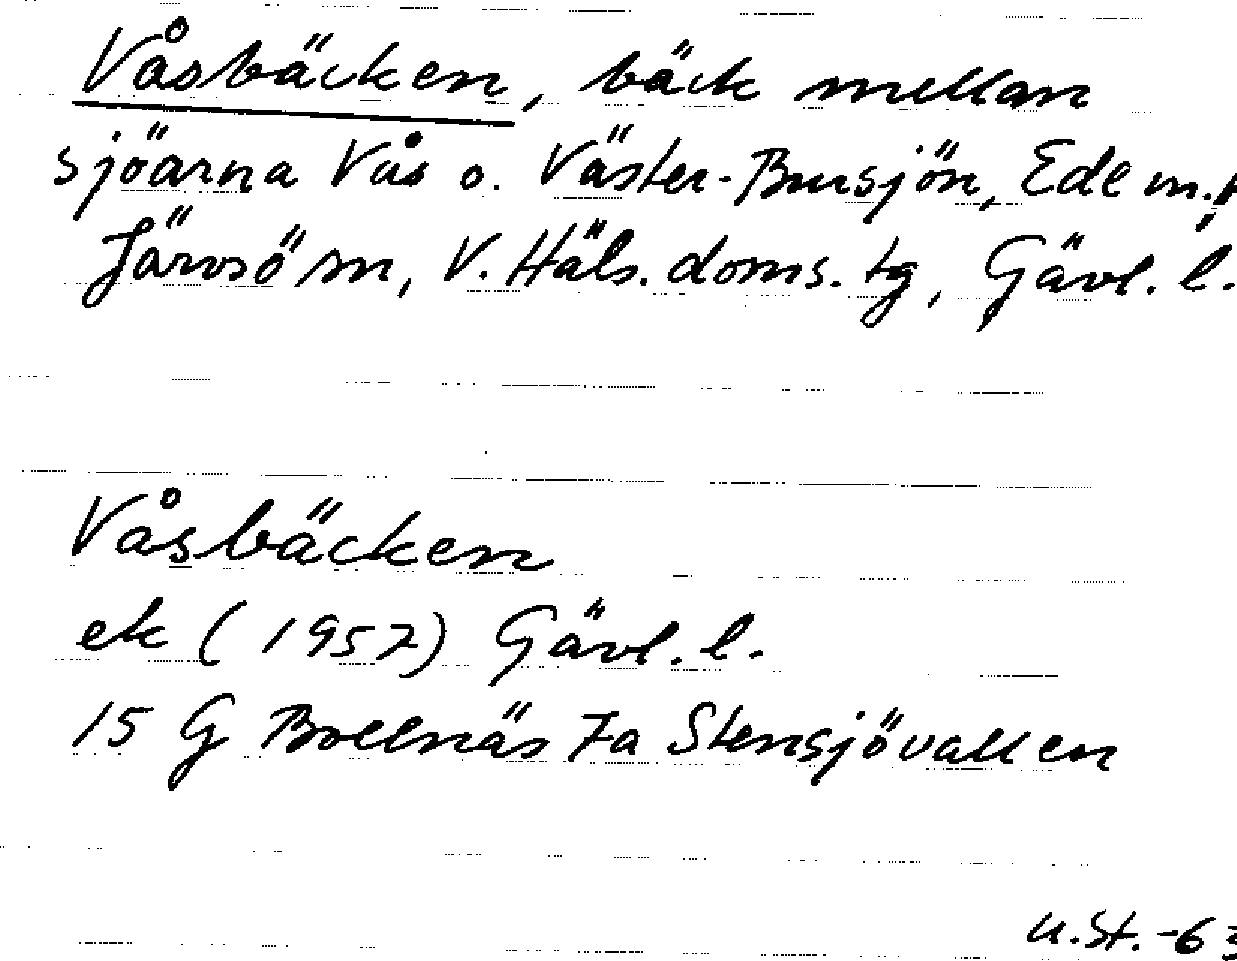 Våsbäcken, bäck mellan
sjöarna Vås o. Väster-Bursjön, Ede m.fl.
Järvsö sn, V. Häls. doms. tg, Gävl. l.
Våsbäcken
ek (1957) Gävl. l.
15 G Bollnäs 7a Stensjövallen
U.St. -63